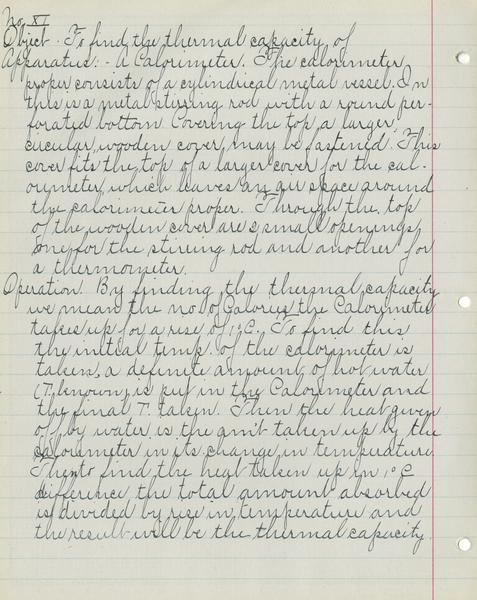 No. XI
Object - To find the thermal capacity of
Apparatus: - a Calorimeter. The calorimeter
proper consists of a cylindrical metal vessel. In
this is a metal stirring rod with a round per-
forated bottom. Covering the top a larger
circular wooden cover may be fastened. This
cover fits the top of a larger cover for the cal-
orimeter, which leaves an air space around
the calorimeter proper. Through the top
of the wooden cover are 2 small openings,
one for the stireing rod and another for
a thermometer.
Operation. By finding the thermal capacity
we mean the no. of Calories the Calorimeter
takes up for a rise of 1°C. To find this
the initial temp. of the calorimeter is
taken, a definite amount of hot water
(T. known) is put in the Calorimeter and
the final T. taken. Then the heat given
off by water is the am't taken up by the
calorimeter in its change in temperature.
Then to find the heat taken up in 1°C
difference the total amount absorbed
is divided by rise in temperature and
the result will be the thermal capacity.